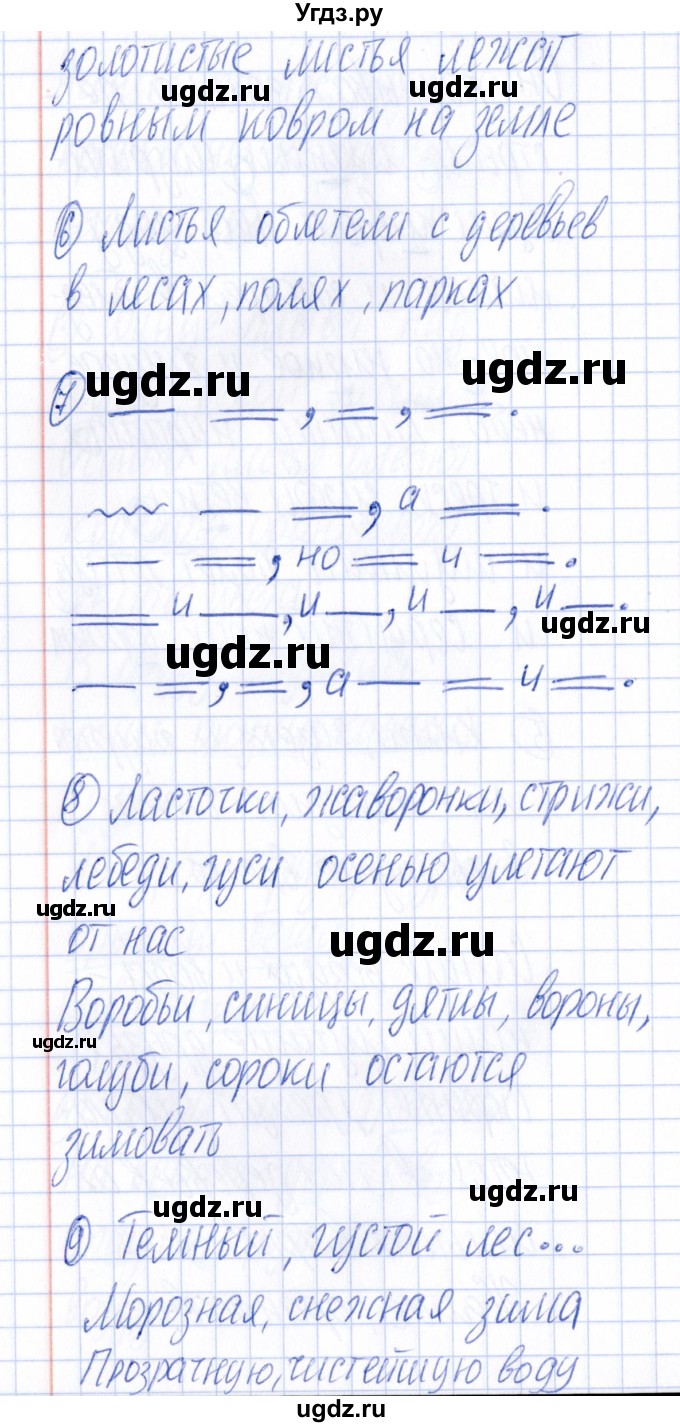 Угдз.ру
золотистые листья лежат
ugdz.ru ugdz.ru
ровным ковром на земле
6) Листья облетели с деревьев
в лесах, полях, парках
7) ugdz.ru ugdz.ru
— =, =, =.
~~~ — =, а =.
— =, но = и =.
= и —, и —, и —, и —.
ugdz.ru ugdz.ru
— =, =, а — = и =.
8) Ласточки, жаворонки, стрижи,
лебеди, гуси осенью улетают
ugdz.ru
от нас ugdz.ru
Воробьи, синицы, дятлы, вороны,
ugdz.ru
голуби, сороки остаются
зимовать
ugdz.ru ugdz.ru
9) Темный, густой лес...
Морозная, снежная зима
Прозрачную, чистейшую воду
ugdz.ru